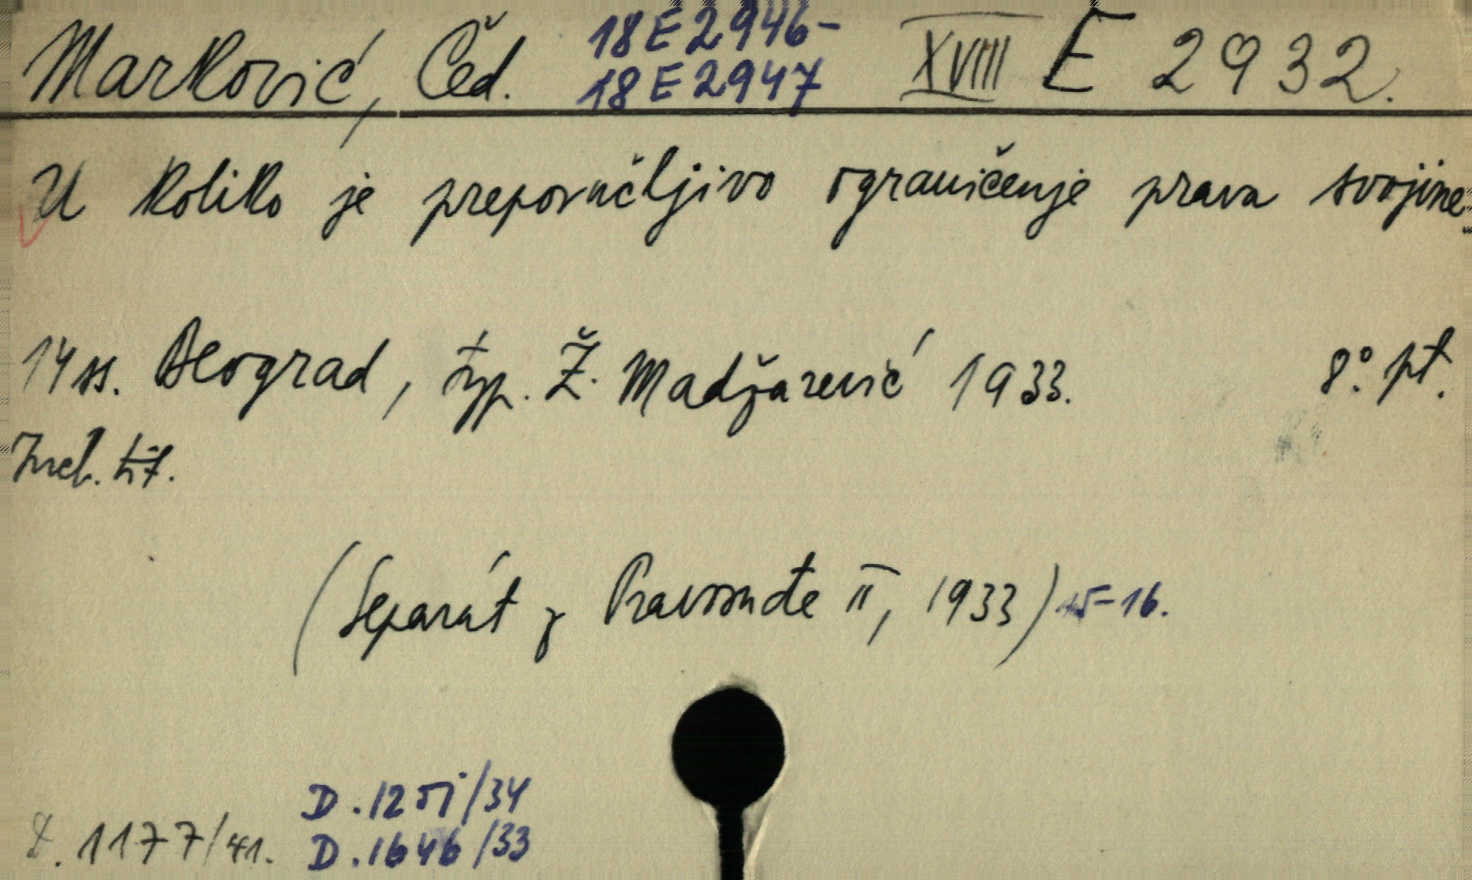 Marković, Čed. 18E2946- XVIII E 2932.
18E2947
U koliko je preporučljivo ograničenje prava svojine.
14 ss. Beograd, typ. Ž. Madžarević 1933. 8°. pt.
tit.
(Separát z Pravosuđe II, 1933) 15-16.
D. 1251/34
D. 1177/41. D. 1646/33